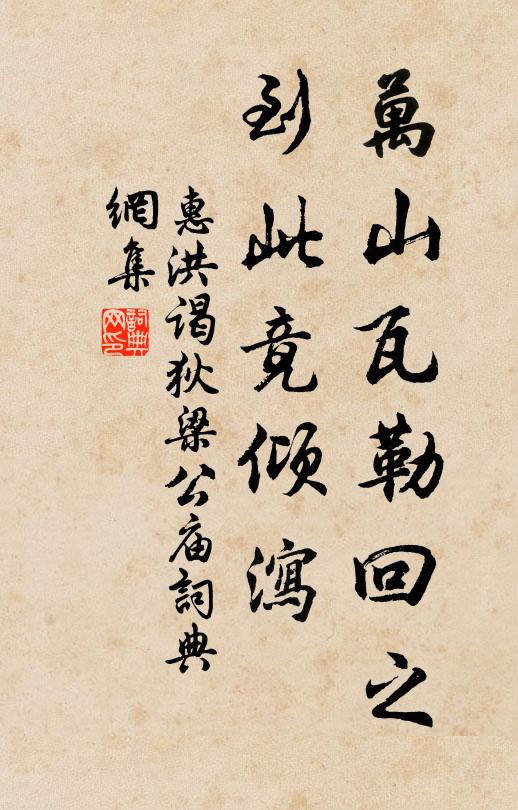 萬山瓦勒回之
到此竟傾瀉
惠洪謁狄梁公庙詞典
網集
詞典网印